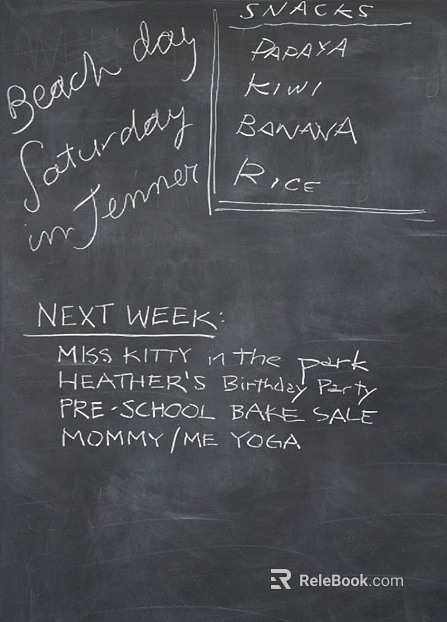 Beach day
Saturday
in Jenner
SNACKS
PAPAYA
KIWI
BANANA
RICE
NEXT WEEK:
MISS KITTY in the park
HEATHER'S Birthday Party
PRE-SCHOOL BAKE SALE
MOMMY/ME YOGA
ReleBook.com